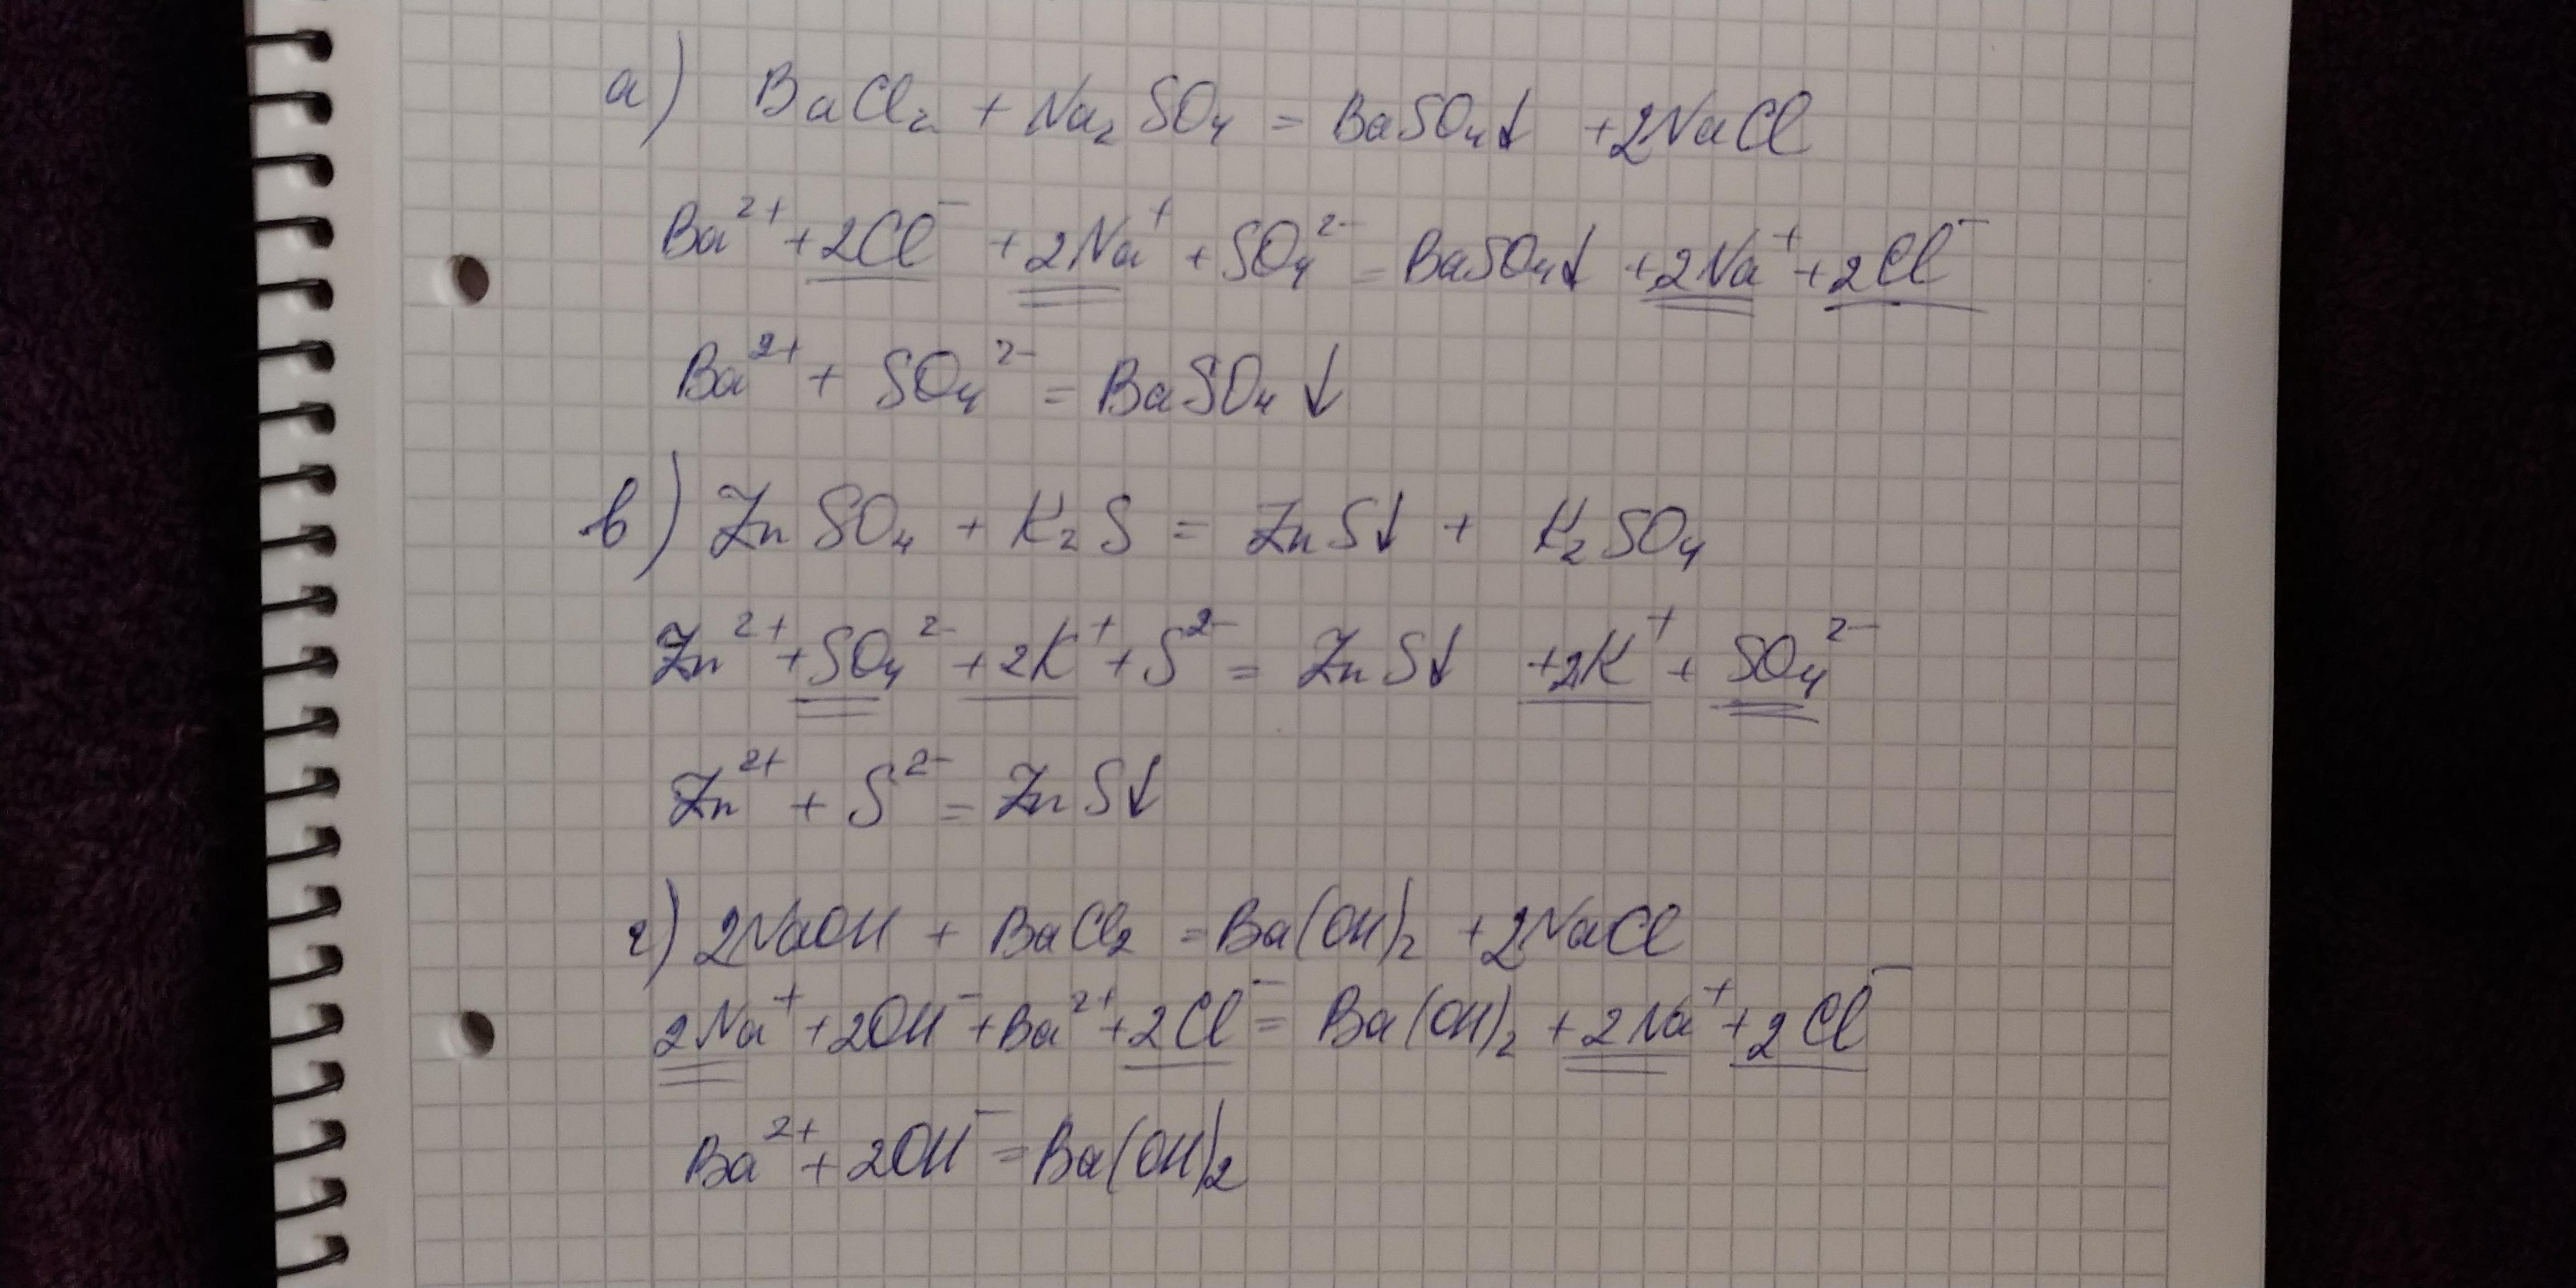 а) BaCl₂ + Na₂SO₄ = BaSO₄↓ + 2NaCl
Ba²⁺ + 2Cl⁻ + 2Na⁺ + SO₄²⁻ = BaSO₄↓ + 2Na⁺ + 2Cl⁻
Ba²⁺ + SO₄²⁻ = BaSO₄↓
в) ZnSO₄ + K₂S = ZnS↓ + K₂SO₄
Zn²⁺ + SO₄²⁻ + 2K⁺ + S²⁻ = ZnS↓ + 2K⁺ + SO₄²⁻
Zn²⁺ + S²⁻ = ZnS↓
г) 2NaOH + BaCl₂ = Ba(OH)₂ + 2NaCl
2Na⁺ + 2OH⁻ + Ba²⁺ + 2Cl⁻ = Ba(OH)₂ + 2Na⁺ + 2Cl⁻
Ba²⁺ + 2OH⁻ = Ba(OH)₂